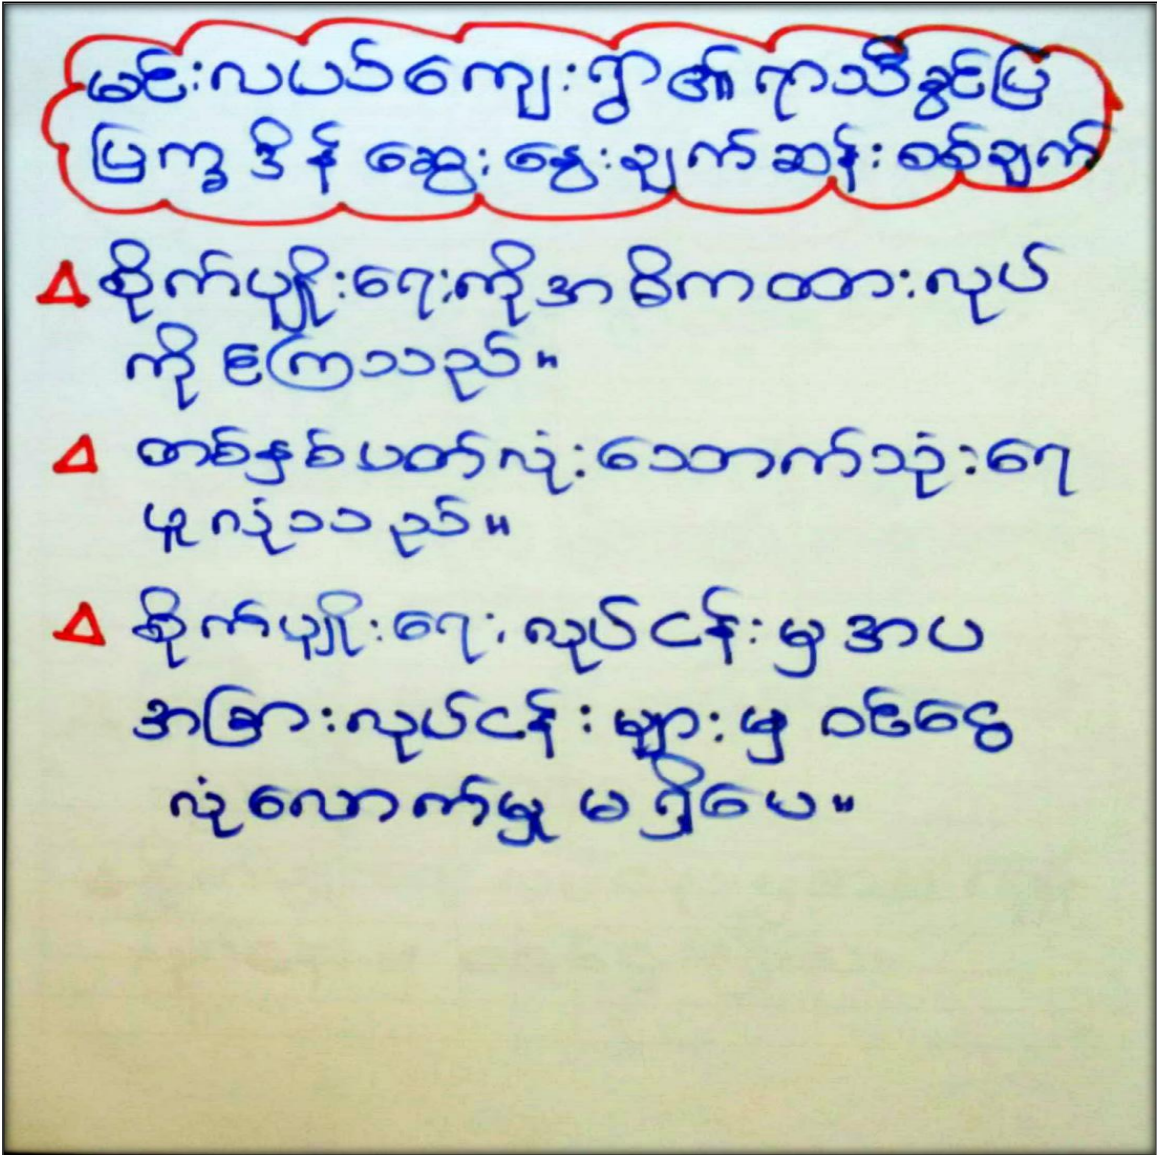 မင်းလယ်ကျေးရွာ၏ ရာသီခွင်ပြ
ပြက္ခဒိန် ဆွေးနွေးချက်ဆန်းစစ်ချက်
Δ စိုက်ပျိုးရေးကိုအဓိကထားလုပ်
ကိုင်ကြသည်။
Δ တစ်နှစ်ပတ်လုံးသောက်သုံးရေ
ဖူလုံသည်။
Δ စိုက်ပျိုးရေးလုပ်ငန်းမှအပ
အခြားလုပ်ငန်းများမှ ဝင်ငွေ
လုံလောက်မှု မရှိပေ။